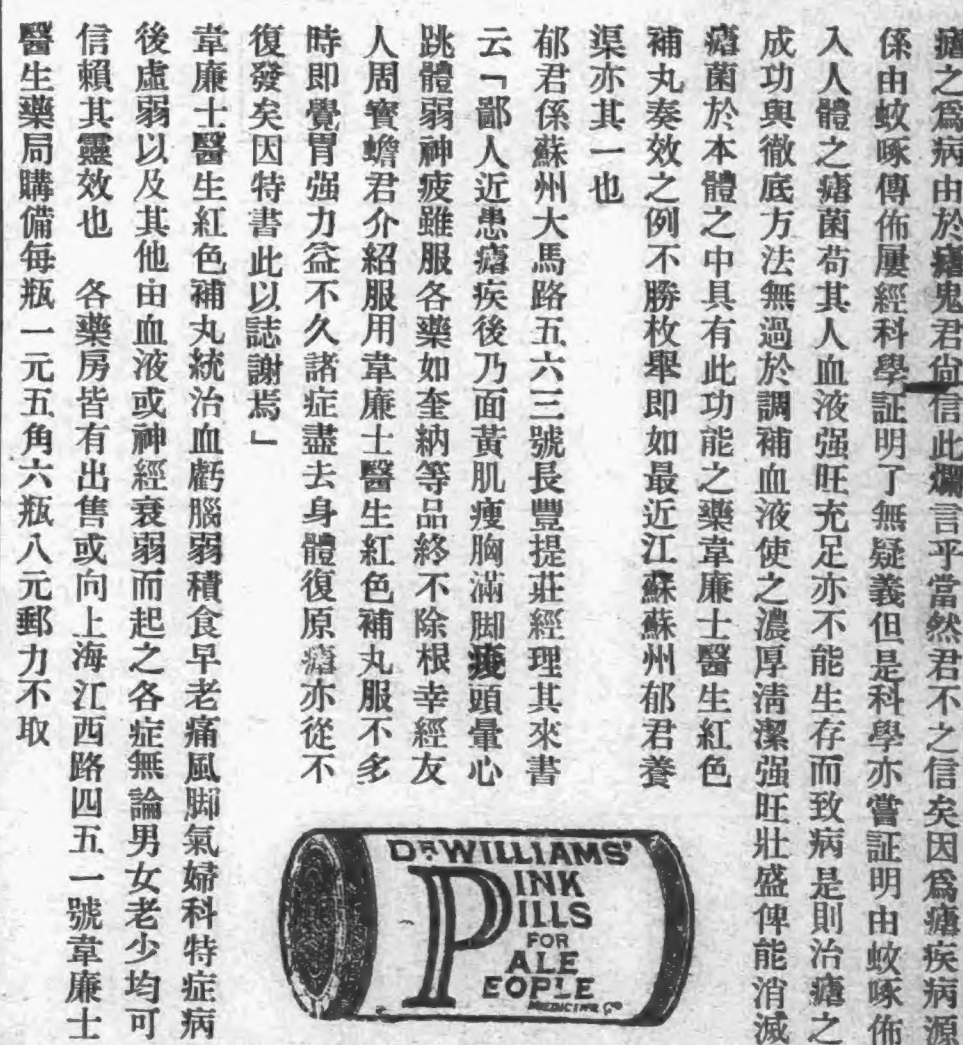 瘧之爲病由於瘧鬼君尙信此爛言乎當然君不之信矣因爲瘧疾病源
係由蚊啄傳佈屢經科學証明了無疑義但是科學亦嘗証明由蚊啄佈
入人體之瘧菌苟其人血液强旺充足亦不能生存而致病是則治瘧之
成功與徹底方法無過於調補血液使之濃厚淸潔强旺壯盛俾能消滅
瘧菌於本體之中具有此功能之藥韋廉士醫生紅色
補丸奏效之例不勝枚舉即如最近江蘇蘇州郁君養
渠亦其一也
郁君係蘇州大馬路五六三號長豐提莊經理其來書
云「鄙人近患瘧疾後乃面黃肌瘦胸滿脚痠頭暈心
跳體弱神疲雖服各藥如奎納等品終不除根幸經友
人周寳蟾君介紹服用韋廉士醫生紅色補丸服不多
時即覺胃强力益不久諸症盡去身體復原瘧亦從不
復發矣因特書此以誌謝焉」
韋廉士醫生紅色補丸統治血虧腦弱積食早老痛風脚氣婦科特症病
後虛弱以及其他由血液或神經衰弱而起之各症無論男女老少均可
信賴其靈效也　各藥房皆有出售或向上海江西路四五一號韋廉士
醫生藥局購備每瓶一元五角六瓶八元郵力不取
DR WILLIAMS'
PINK
PILLS
FOR
PALE
PEOPLE
MEDICINE Co